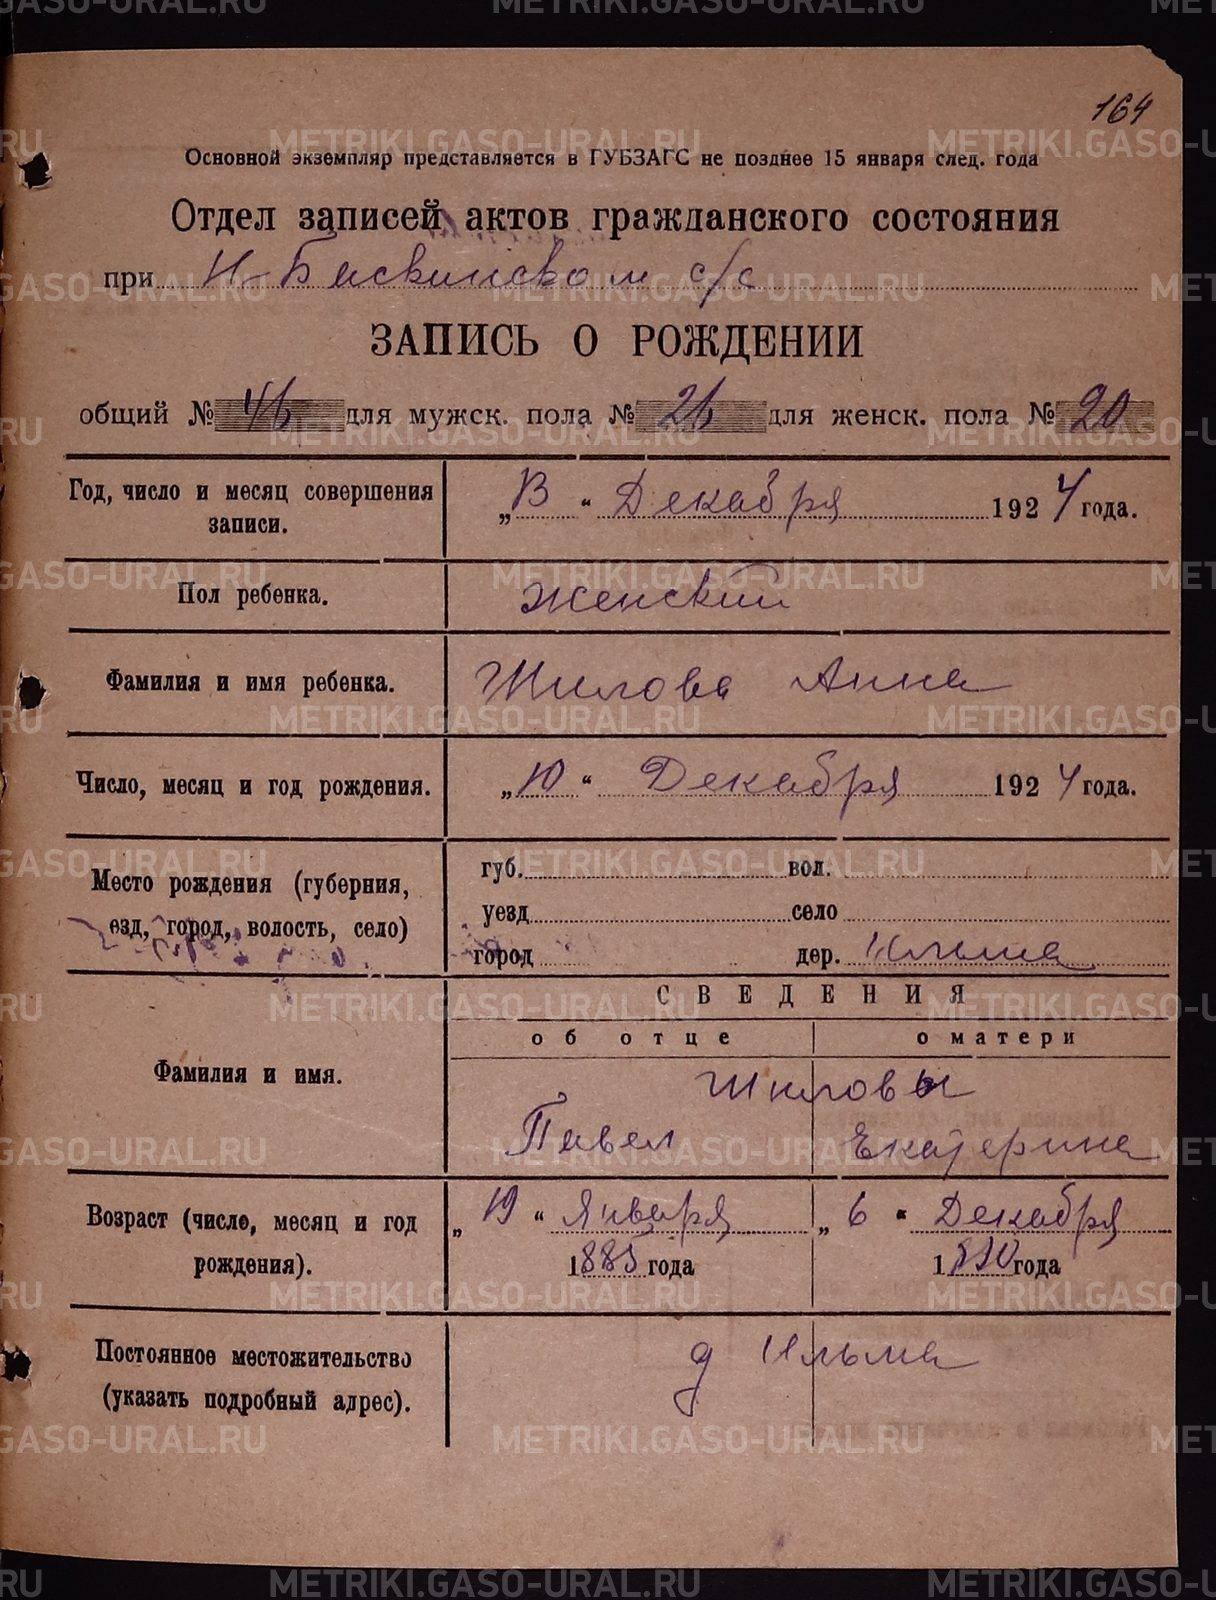 164
Основной экземпляр представляется в ГУБЗАГС не позднее 15 января след. года
Отдел записей актов гражданского состояния
при Н-Бисквинском с/с
ЗАПИСЬ О РОЖДЕНИИ
общий № 46 для мужск. пола № 26 для женск. пола № 20
Год, число и месяц совершения записи.
„13“ Декабря 1924 года.
Пол ребенка.
Женский
Фамилия и имя ребенка.
Шилова Анна
Число, месяц и год рождения.
„10“ Декабря 1924 года.
Место рождения (губерния, езд, город, волость, село)
губ. вол.
уезд село
город дер. Ильма
СВЕДЕНИЯ
об отце о матери
Фамилия и имя.
Шиловы
Павел Екатерина
Возраст (число, месяц и год рождения).
„19“ Января „6“ Декабря
1885 года 1890 года
Постоянное местожительство (указать подробный адрес).
д Ильма
METRIKI.GASO-URAL.RU